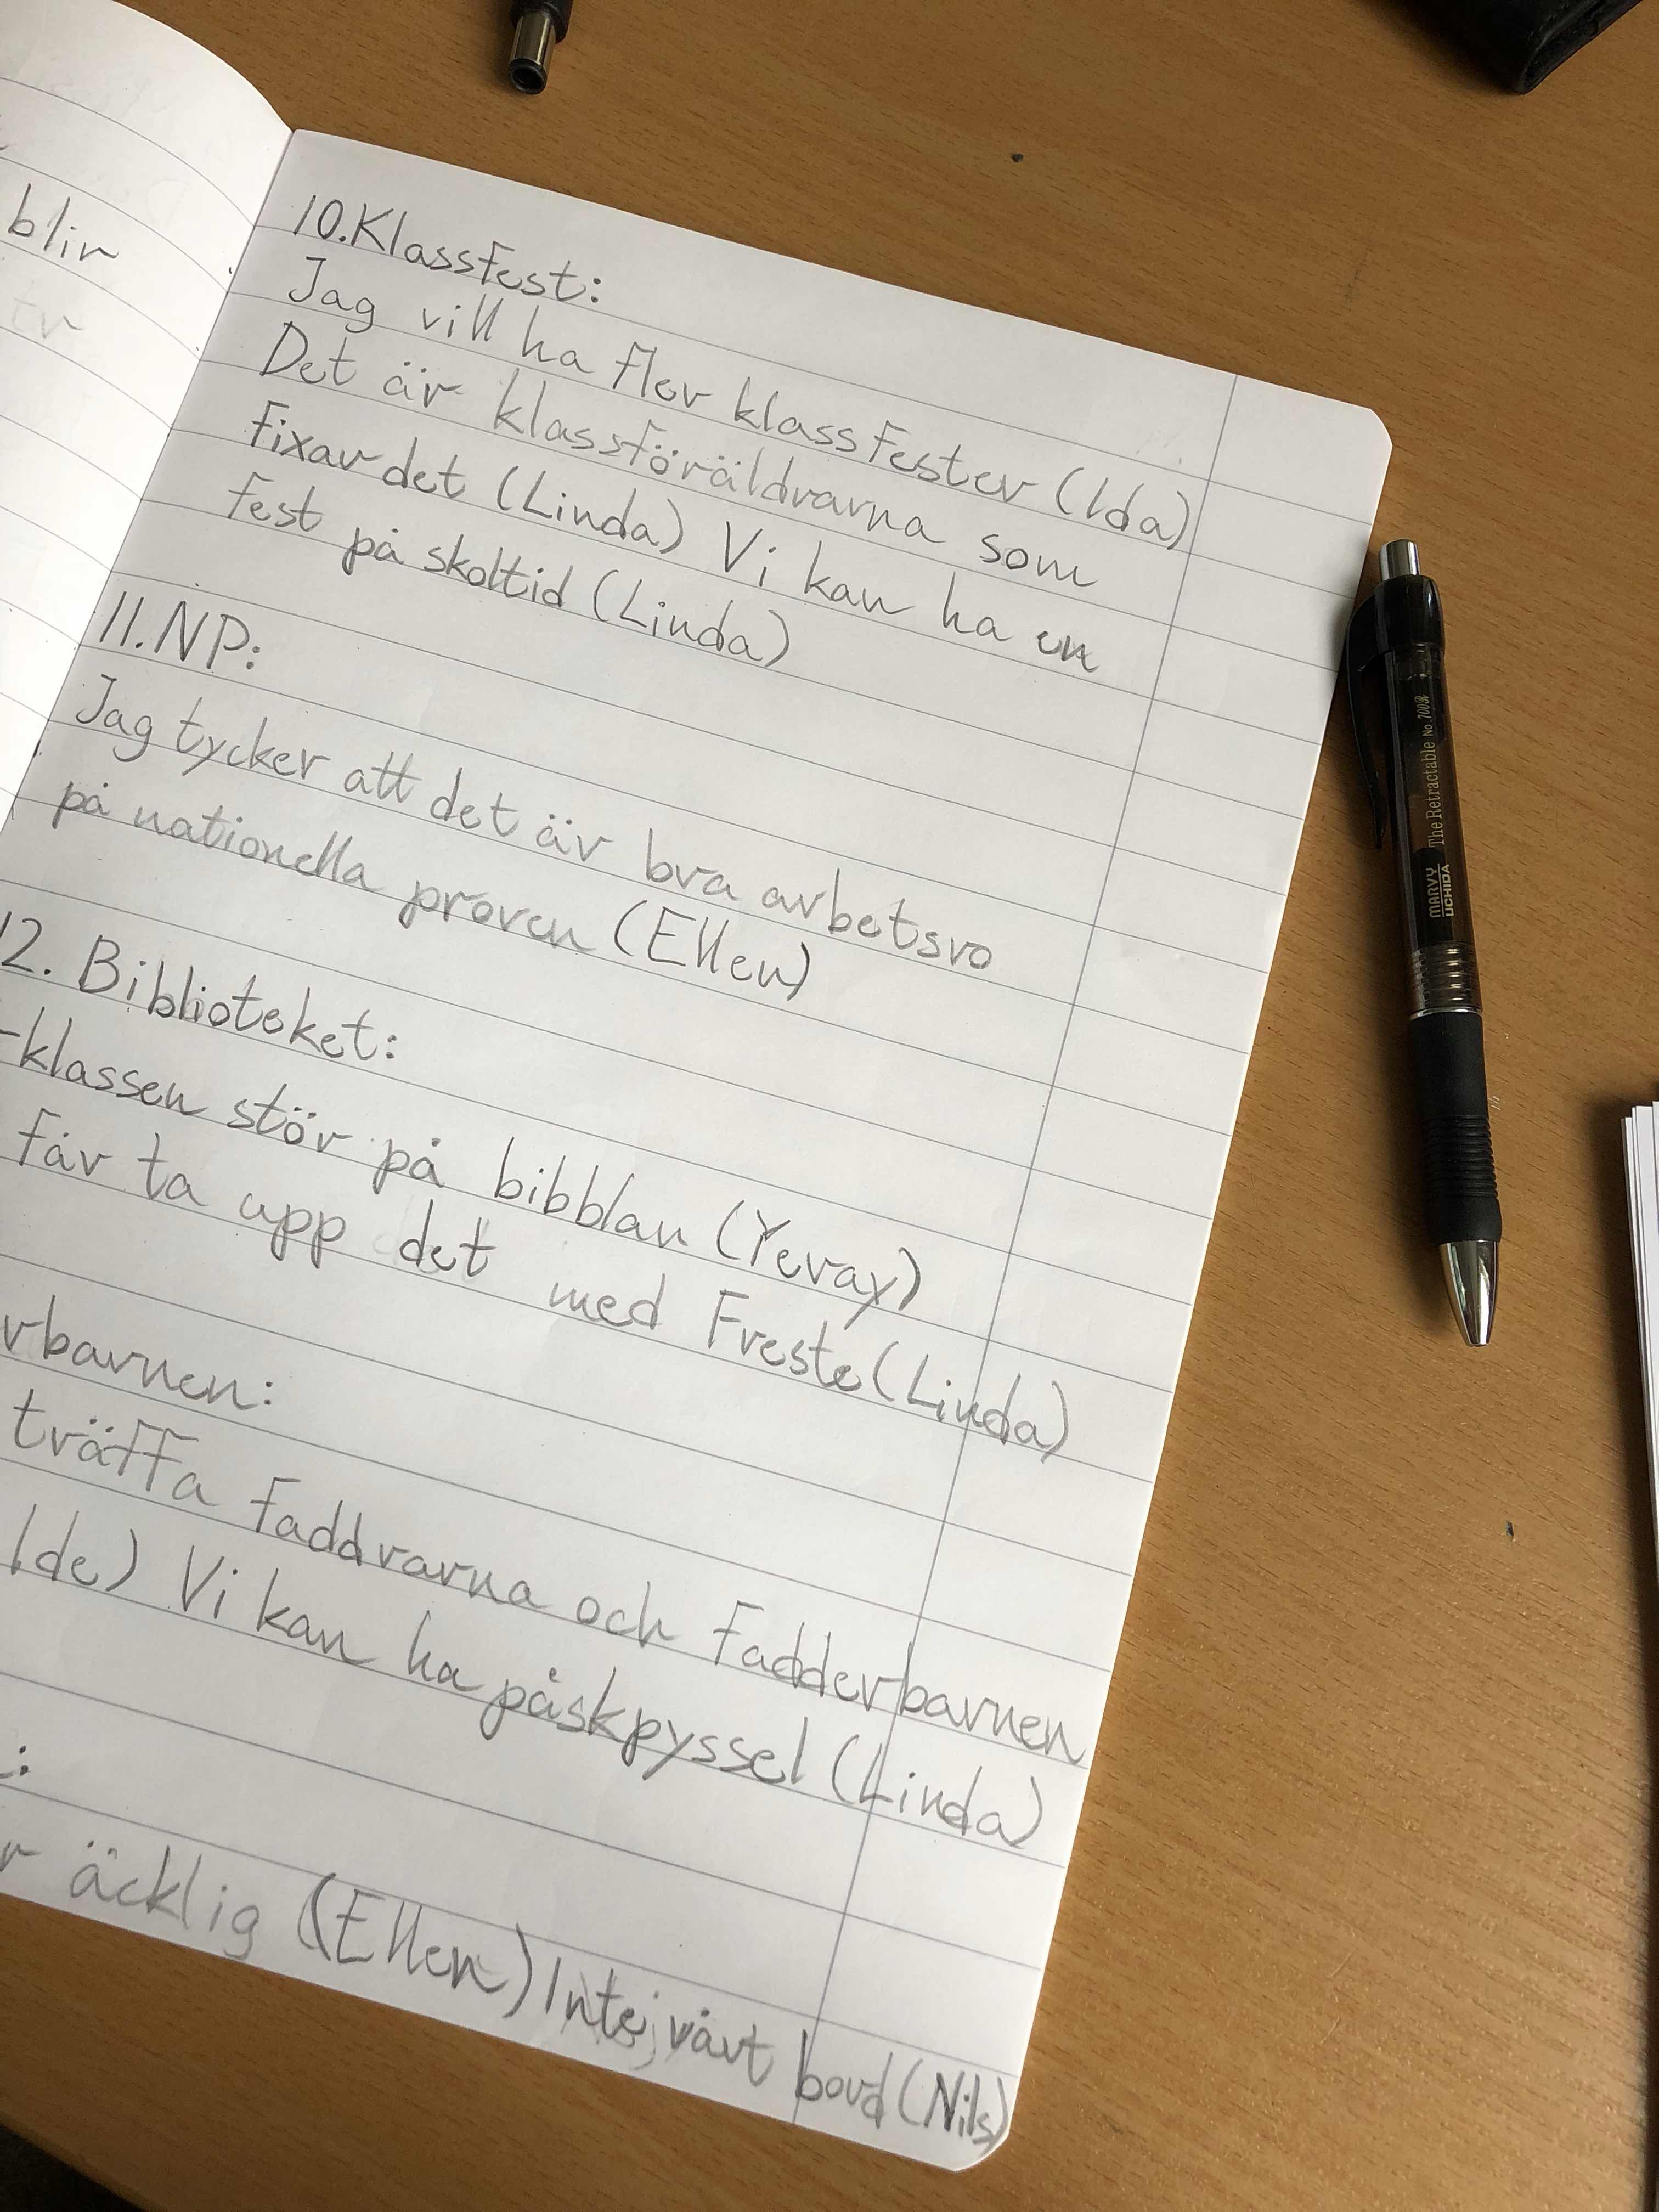 blir
tv
10. Klassfest:
Jag vill ha fler klassfester (Ida)
Det är klassföräldrarna som
fixar det (Linda) Vi kan ha en
fest på skoltid (Linda)
11. NP:
Jag tycker att det är bra arbetsro
på nationella proven (Ellen)
12. Biblioteket:
-klassen stör på bibblan (Yeray)
får ta upp det med Freste (Linda)
rbarnen:
träffa faddrarna och fadderbarnen
lde) Vi kan ha påskpyssel (Linda)
:
r äcklig (Ellen) Inte vårt bord (Nils)
MARVY UCHIDA The Retractable No. 1003